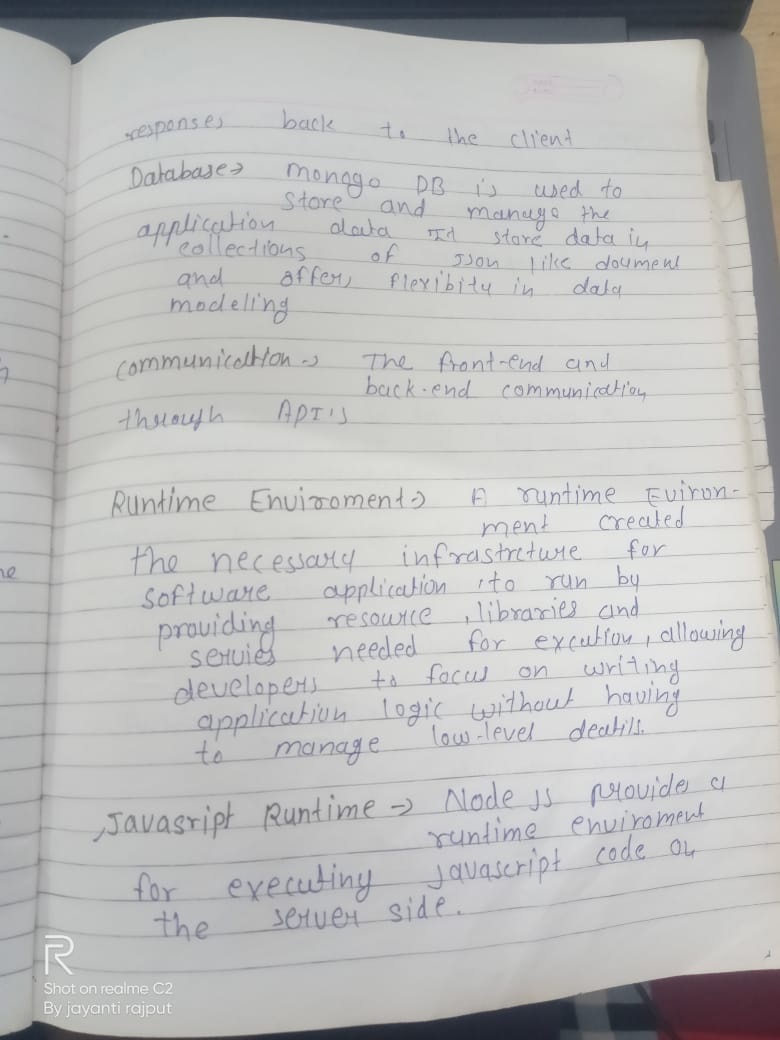 responses back to the client
Database→ monago DB is used to
store and manage the
application data It store data in
collections of JSon like doument
and offers flexibity in data
modeling
communication→ The front-end and
back-end communication
through API's
Runtime Enviroment→ A runtime Eviron-
ment created
the necessary infrastrcture for
software application to run by
providing resource, libraries and
servies needed for excution, allowing
developers to focus on writing
application logic without having
to manage low-level deatils.
Javasript Runtime → Node JS provide a
runtime enviroment
for executing javascript code on
the server side.
R
Shot on realme C2
By jayanti rajput